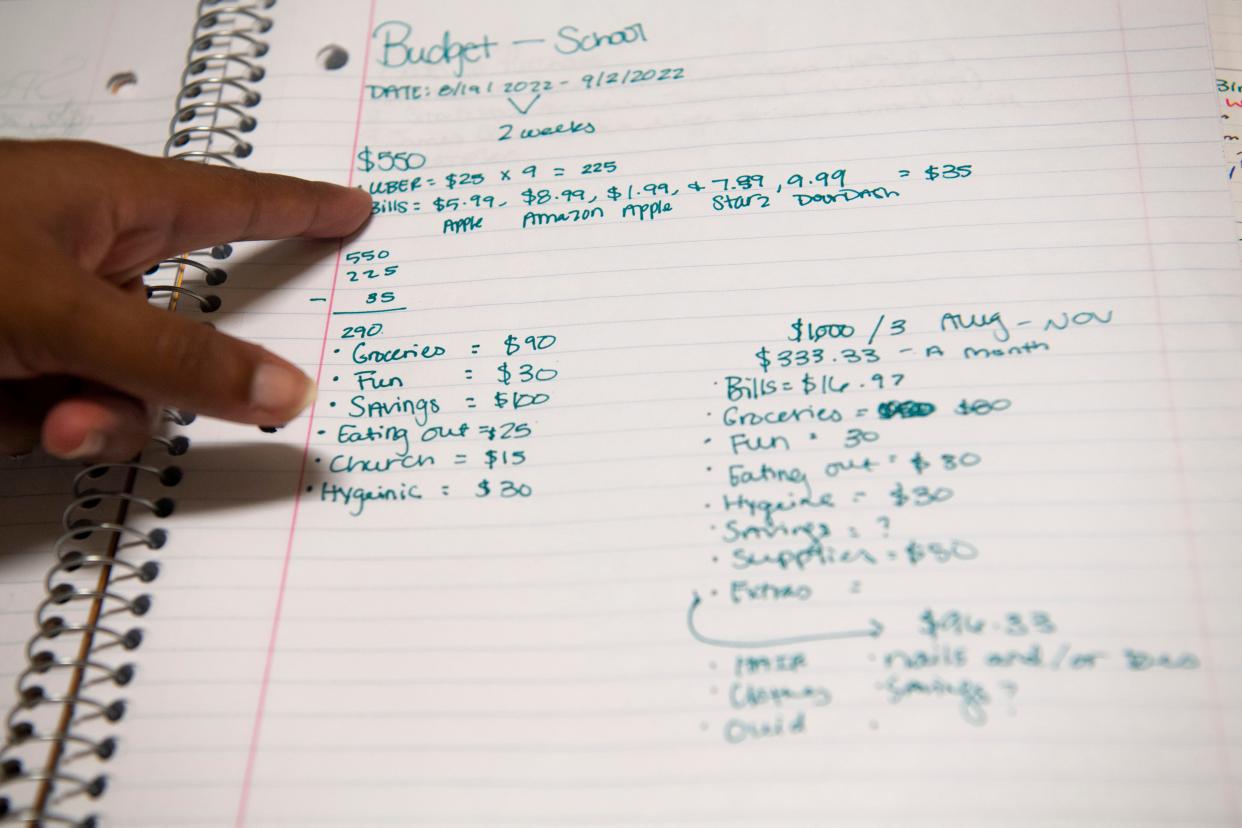 Budget — School
DATE: 8/19/2022 - 9/2/2022
2 weeks
$550
· UBER = $25 x 9 = 225
Bills = $5.99, $8.99, $1.99, + 7.89, 9.99 = $35
Apple Amazon Apple Starz DoorDash
550
225
- 35
290
· Groceries = $90
· Fun = $30
· Savings = $100
· Eating out = $25
· Church = $15
· Hygeinic = $30
$1,000 / 3 Aug - NOV
$333.33 - A month
· Bills = $16.97
· Groceries = $80
· Fun = 30
· Eating out = $30
· Hygeine = $30
· Savings = ?
· Supplies = $50
· Extras =
$96.33
· HAIR · nails and/or
· Clothes · Savings ?
·